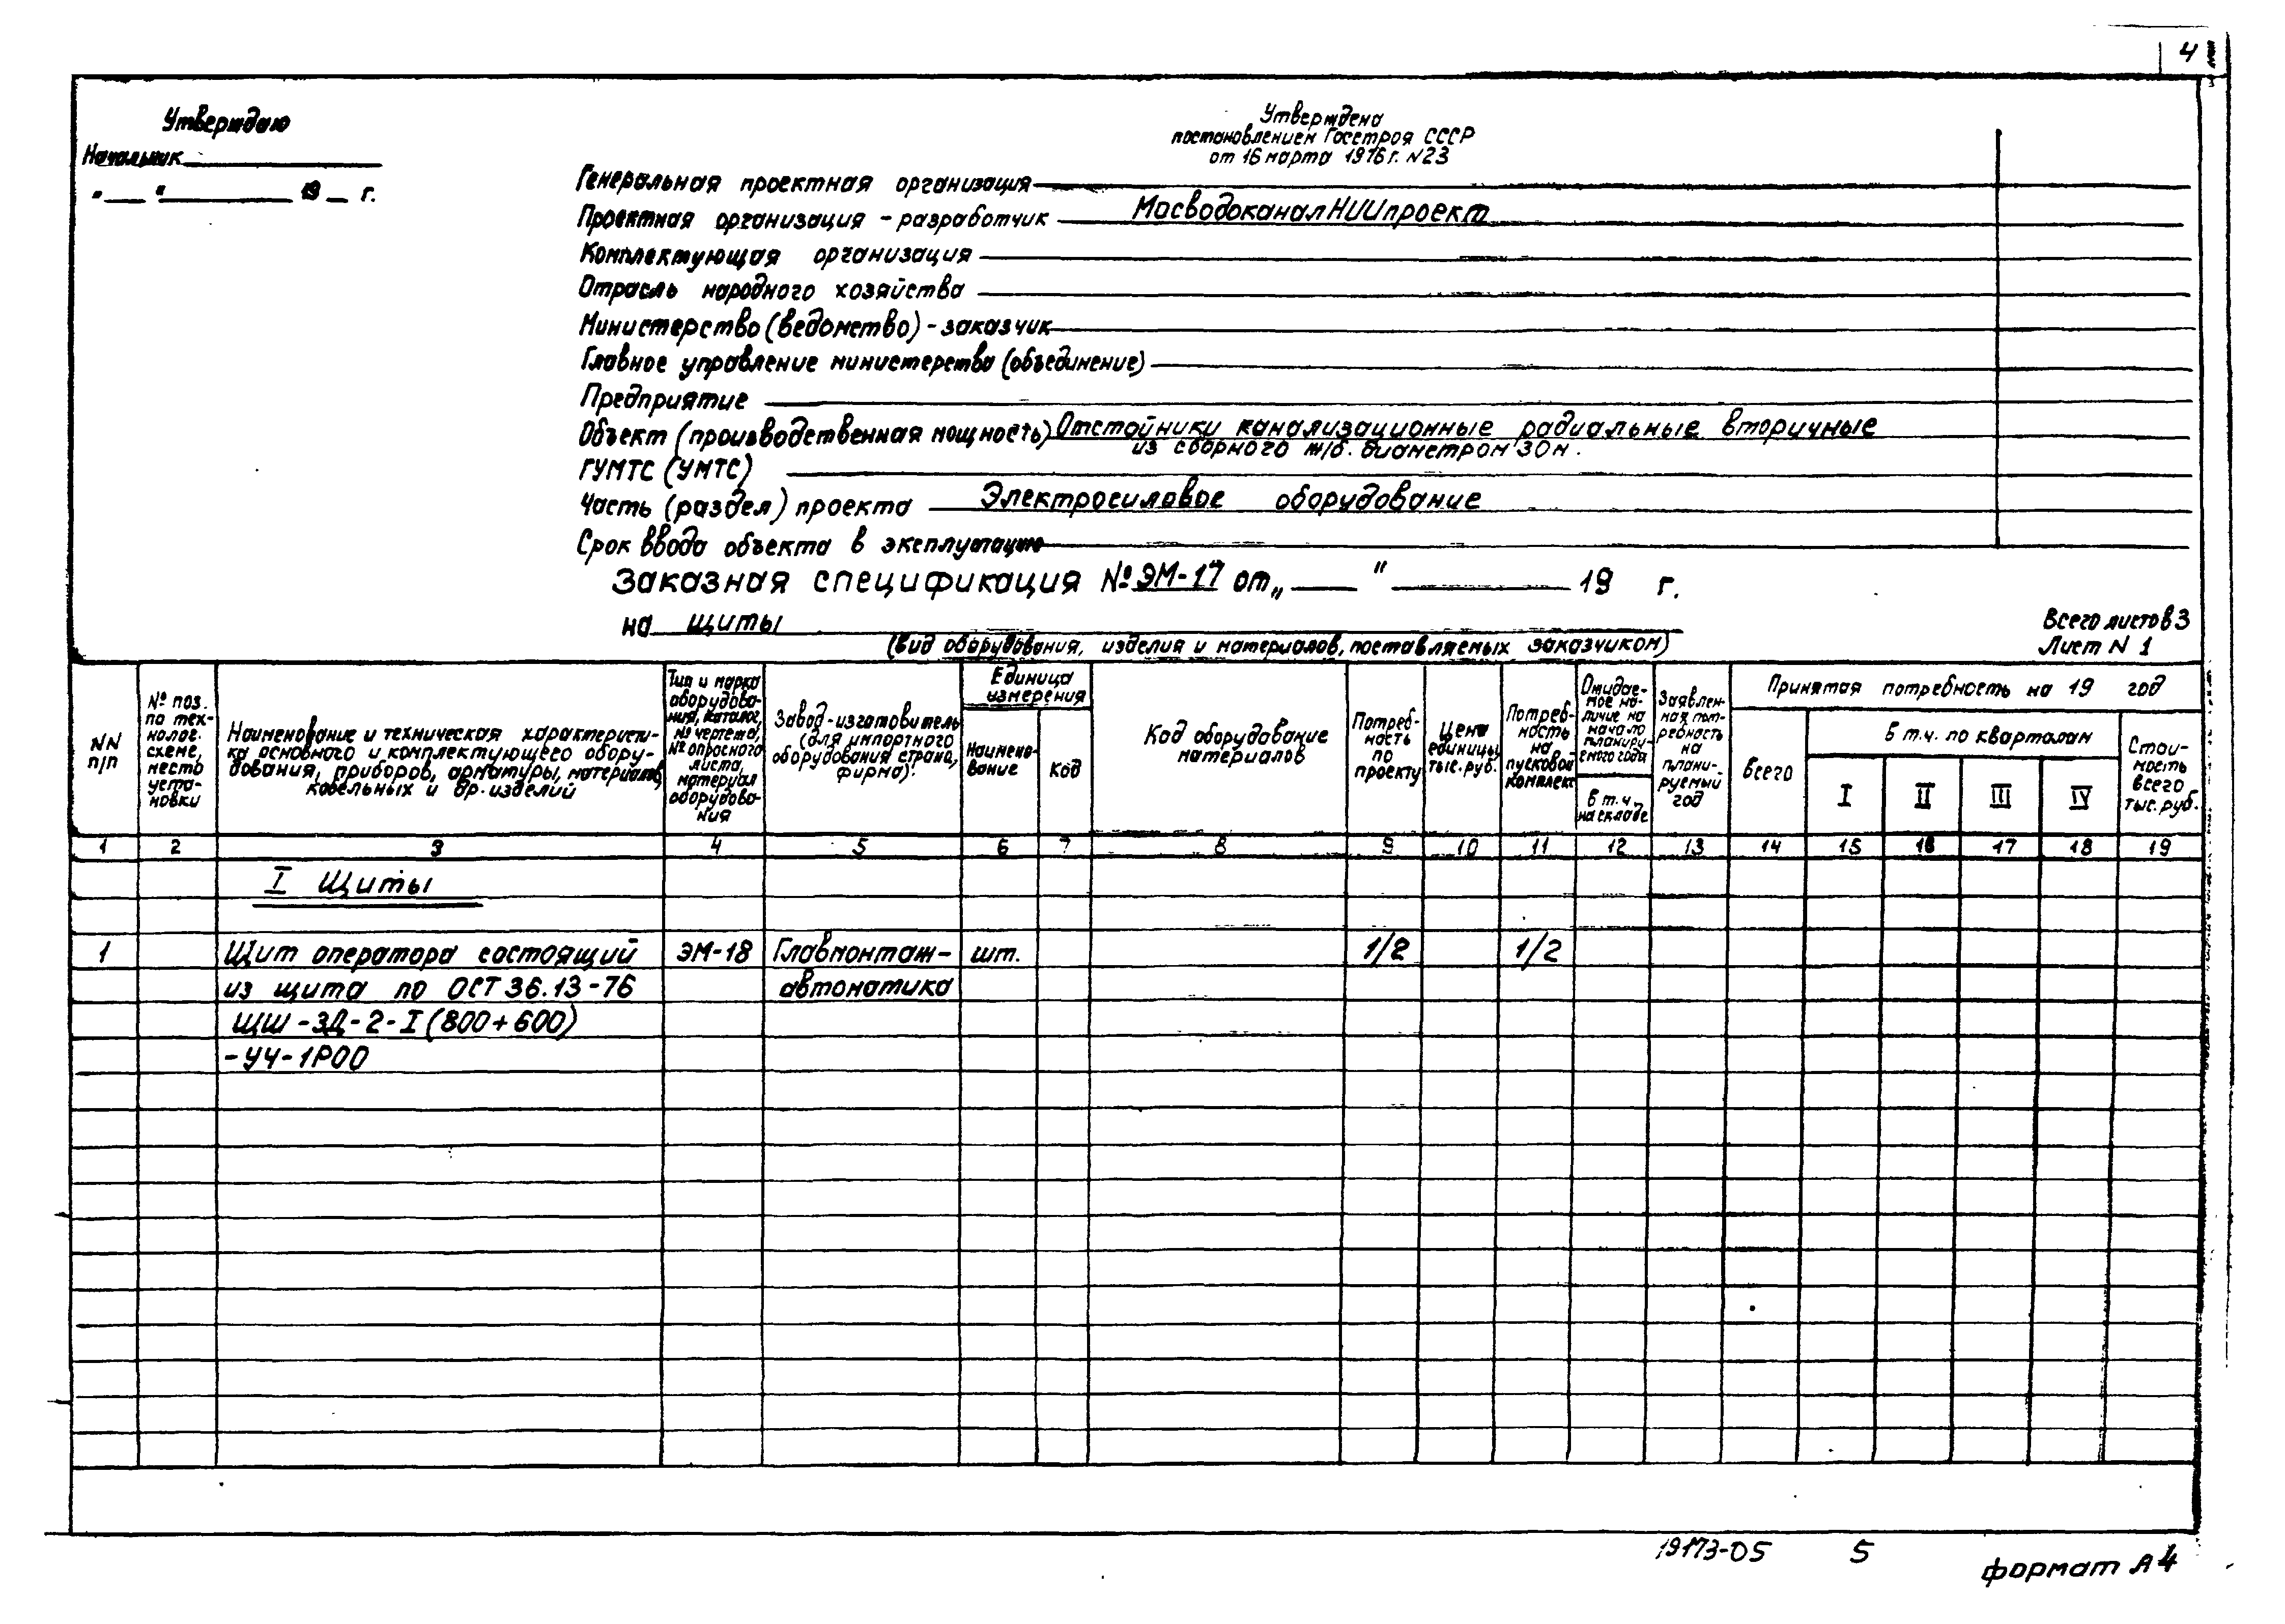 4
Утверждаю
Начальник
"__"________ 19__ г.
Утверждена
постановлением Госстроя СССР
от 16 марта 1976 г. N23
Генеральная проектная организация
Проектная организация - разработчик МосводоканалНИИпроект
Комплектующая организация
Отрасль народного хозяйства
Министерство (ведомство) - заказчик
Главное управление министерства (объединение)
Предприятие
Объект (производственная мощность) Отстойники канализационные радиальные вторичные
из сборного ж/б. диаметром 30м.
ГУМТС (УМТС)
Часть (раздел) проекта Электросиловое оборудование
Срок ввода объекта в эксплуатацию
Заказная спецификация № ЭМ-17 от „____" ________ 19 г.
на щиты
(вид оборудования, изделия и материалов, поставляемых заказчиком)
Всего листов 3
Лист N 1
NN
п/п
№ поз.
по тех-
нолог.
схеме,
место
уста-
новки
Наименование и техническая характеристи-
ка основного и комплектующего обору-
дования, приборов, арматуры, материалов,
кабельных и др. изделий
Тип и марка
оборудова-
ния, каталог,
№ чертежа,
№ опросного
листа,
материал
оборудова-
ния
Завод-изготовитель
(для импортного
оборудования страна,
фирма).
Единица
измерения
Наимено-
вание
Код
Код оборудование
материалов
Потреб-
ность
по
проекту
Цена
единицы
тыс. руб.
Потреб-
ность
на
пусковой
комплекс
Ожидае-
мое на-
личие на
начало
планиру-
емого года
в т.ч.
на складе
Заявлен-
ная пот-
ребность
на
плани-
руемый
год
Принятая потребность на 19 год
Всего
В т.ч. по кварталам
I II III IV
Стои-
мость
всего
тыс. руб.
1 2 3 4 5 6 7 8 9 10 11 12 13 14 15 16 17 18 19
I Щиты
1 Щит оператора состоящий ЭМ-18 Главмонтаж- шт. 1/2 1/2
из щита по ОСТ 36.13-76 автоматика
ЩШ-ЗД-2-I (800+600)
-УЧ-1Р00
19173-05 5
формат А4